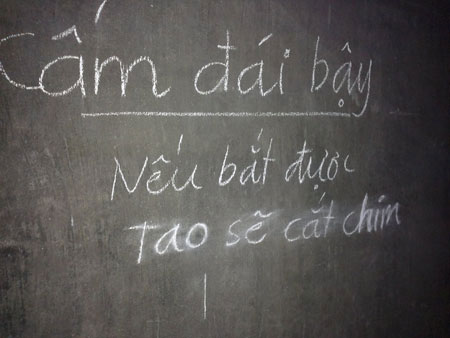 Cấm đái bậy
Nếu bắt được
Tao sẽ cắt chim